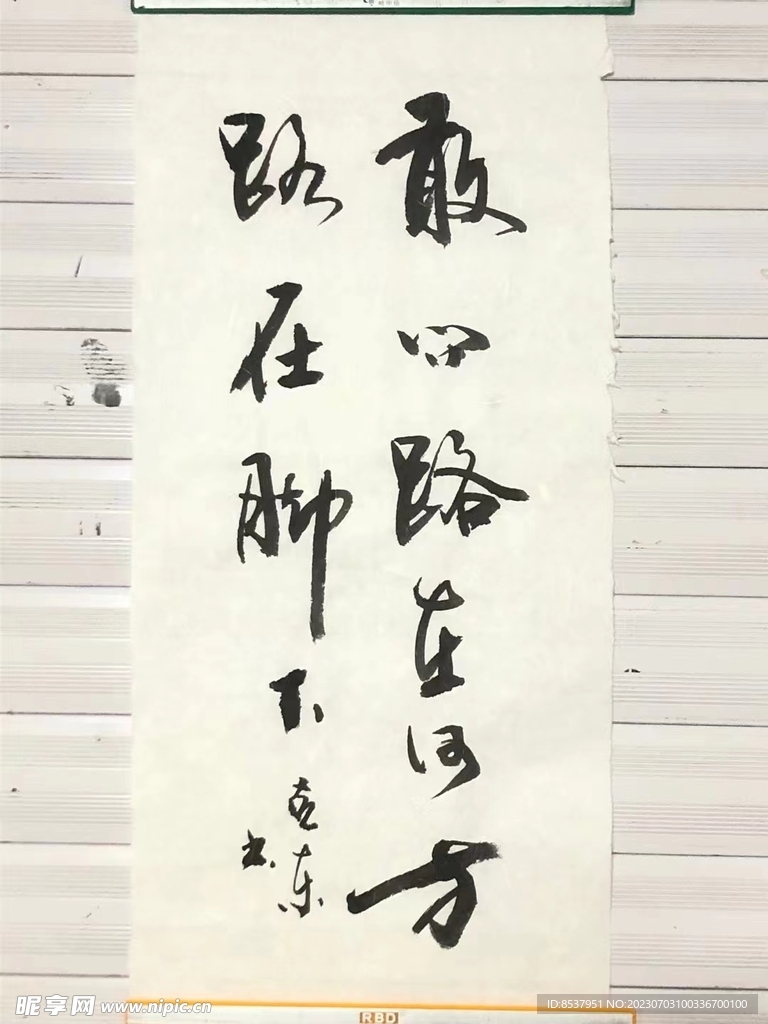 敢问路在何方
路在脚下
东
书
RBD
昵享网 www.nipic.cn
ID:8537951 NO:20230703100336700100